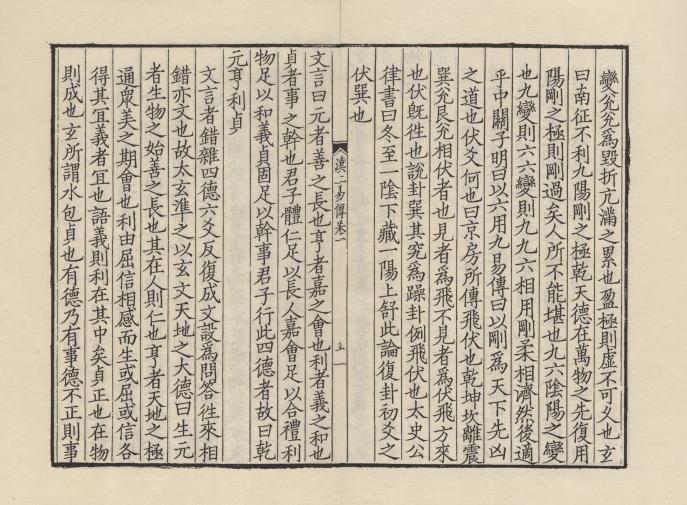 變兊兊爲毀折亢滿之累也盈極則虛不可久也玄
曰南征不利九陽剛之極乾天德在萬物之先復用
陽剛之極則剛過矣人所不能堪也九六陰陽之變
也九變則六六變則九九六相用剛柔相濟然後適
乎中關子明曰以六用九易傳曰以剛爲天下先凶
之道也伏爻何也曰京房所傳飛伏也乾坤坎離震
巽兊艮兊相伏者也見者爲飛不見者爲伏飛方來
也伏旣徃也說卦巽其究爲躁卦例飛伏也太史公
律書曰冬至一陰下藏一陽上舒此論復卦初爻之
伏巽也
漢上易傳卷一
五
文言曰元者善之長也亨者嘉之會也利者義之和也
貞者事之幹也君子體仁足以長人嘉會足以合禮利
物足以和義貞固足以幹事君子行此四德者故曰乾
元亨利貞
文言者錯雜四德六爻反復成文設爲問答徃來相
錯亦文也故太玄準之以玄文天地之大德曰生元
者生物之始善之長也其在人則仁也亨者天地之極
通衆美之期會也利由屈信相感而生或屈或信各
得其冝義者冝也語義則利在其中矣貞正也在物
則成也玄所謂水包貞也有德乃有事德不正則事